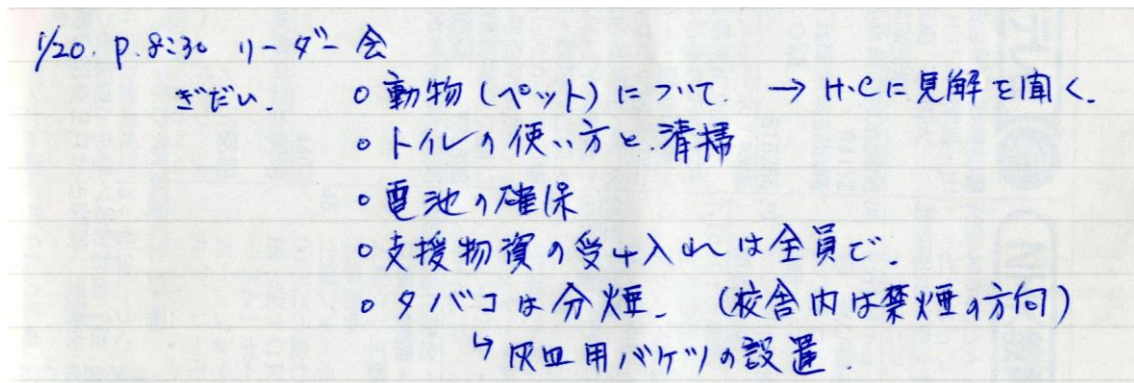 1/20. P.8:30 リーダー会
ぎだい. ○動物(ペット)について. → H.Cに見解を聞く.
○トイレの使い方と清掃
○電池の確保
○支援物資の受け入れは全員で.
○タバコは分煙. (校舎内は禁煙の方向)
↳灰皿用バケツの設置.